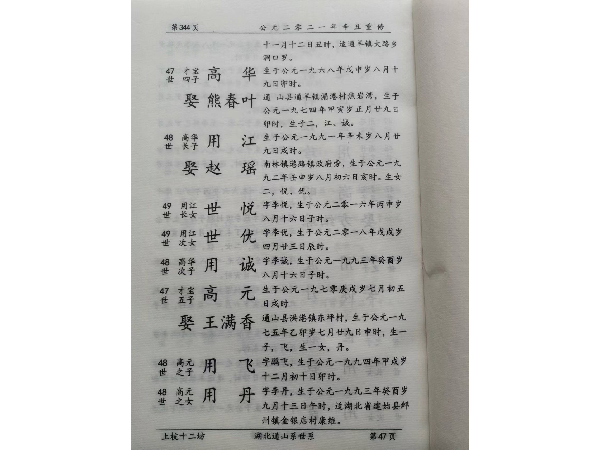 第344页 公元二零二一年辛丑重修
十一月十二日丑时，适通羊镇大路乡
洞口罗。
47世 才宝四子 高华 生于公元一九六八年戊申岁八月十
九日卯时。
娶熊春叶 通山县通羊镇湄港村焦岩湾，生于
公元一九七四年甲寅岁正月廿九日
卯时，生子二，江、诚。
48世 高华长子 用江 生于公元一九九一年辛未岁八月廿
九日戌时。
娶赵瑶 南林镇港路镇政府旁，生于公元一九
九二年壬申岁八月初六日亥时。生女
二，悦、优。
49世 用江长女 世悦 字李悦，生于公元二零一六年丙申岁
八月十六日子时。
49世 用江次女 世优 字李优，生于公元二零一八年戊戌岁
四月廿三日辰时。
48世 高华次子 用诚 字李诚，生于公元一九九三年癸酉岁
八月十六日子时。
47世 才宝五子 高元 生于公元一九七零庚戌岁七月初五
日戌时
娶王满香 通山县洪港镇东坪村，生于公元一九
七五年乙卯岁七月廿九日申时，生一
子，飞，生一女，丹。
48世 高元之子 用飞 字鹏飞，生于公元一九九四年甲戌岁
十二月初十日卯时。
48世 高元之女 用丹 字李丹，生于公元一九九三年癸酉岁
九月十三日午时，适湖北省建始县邺
州镇金银店村康维。
上杭十二坊 湖北通山系世系 第47页